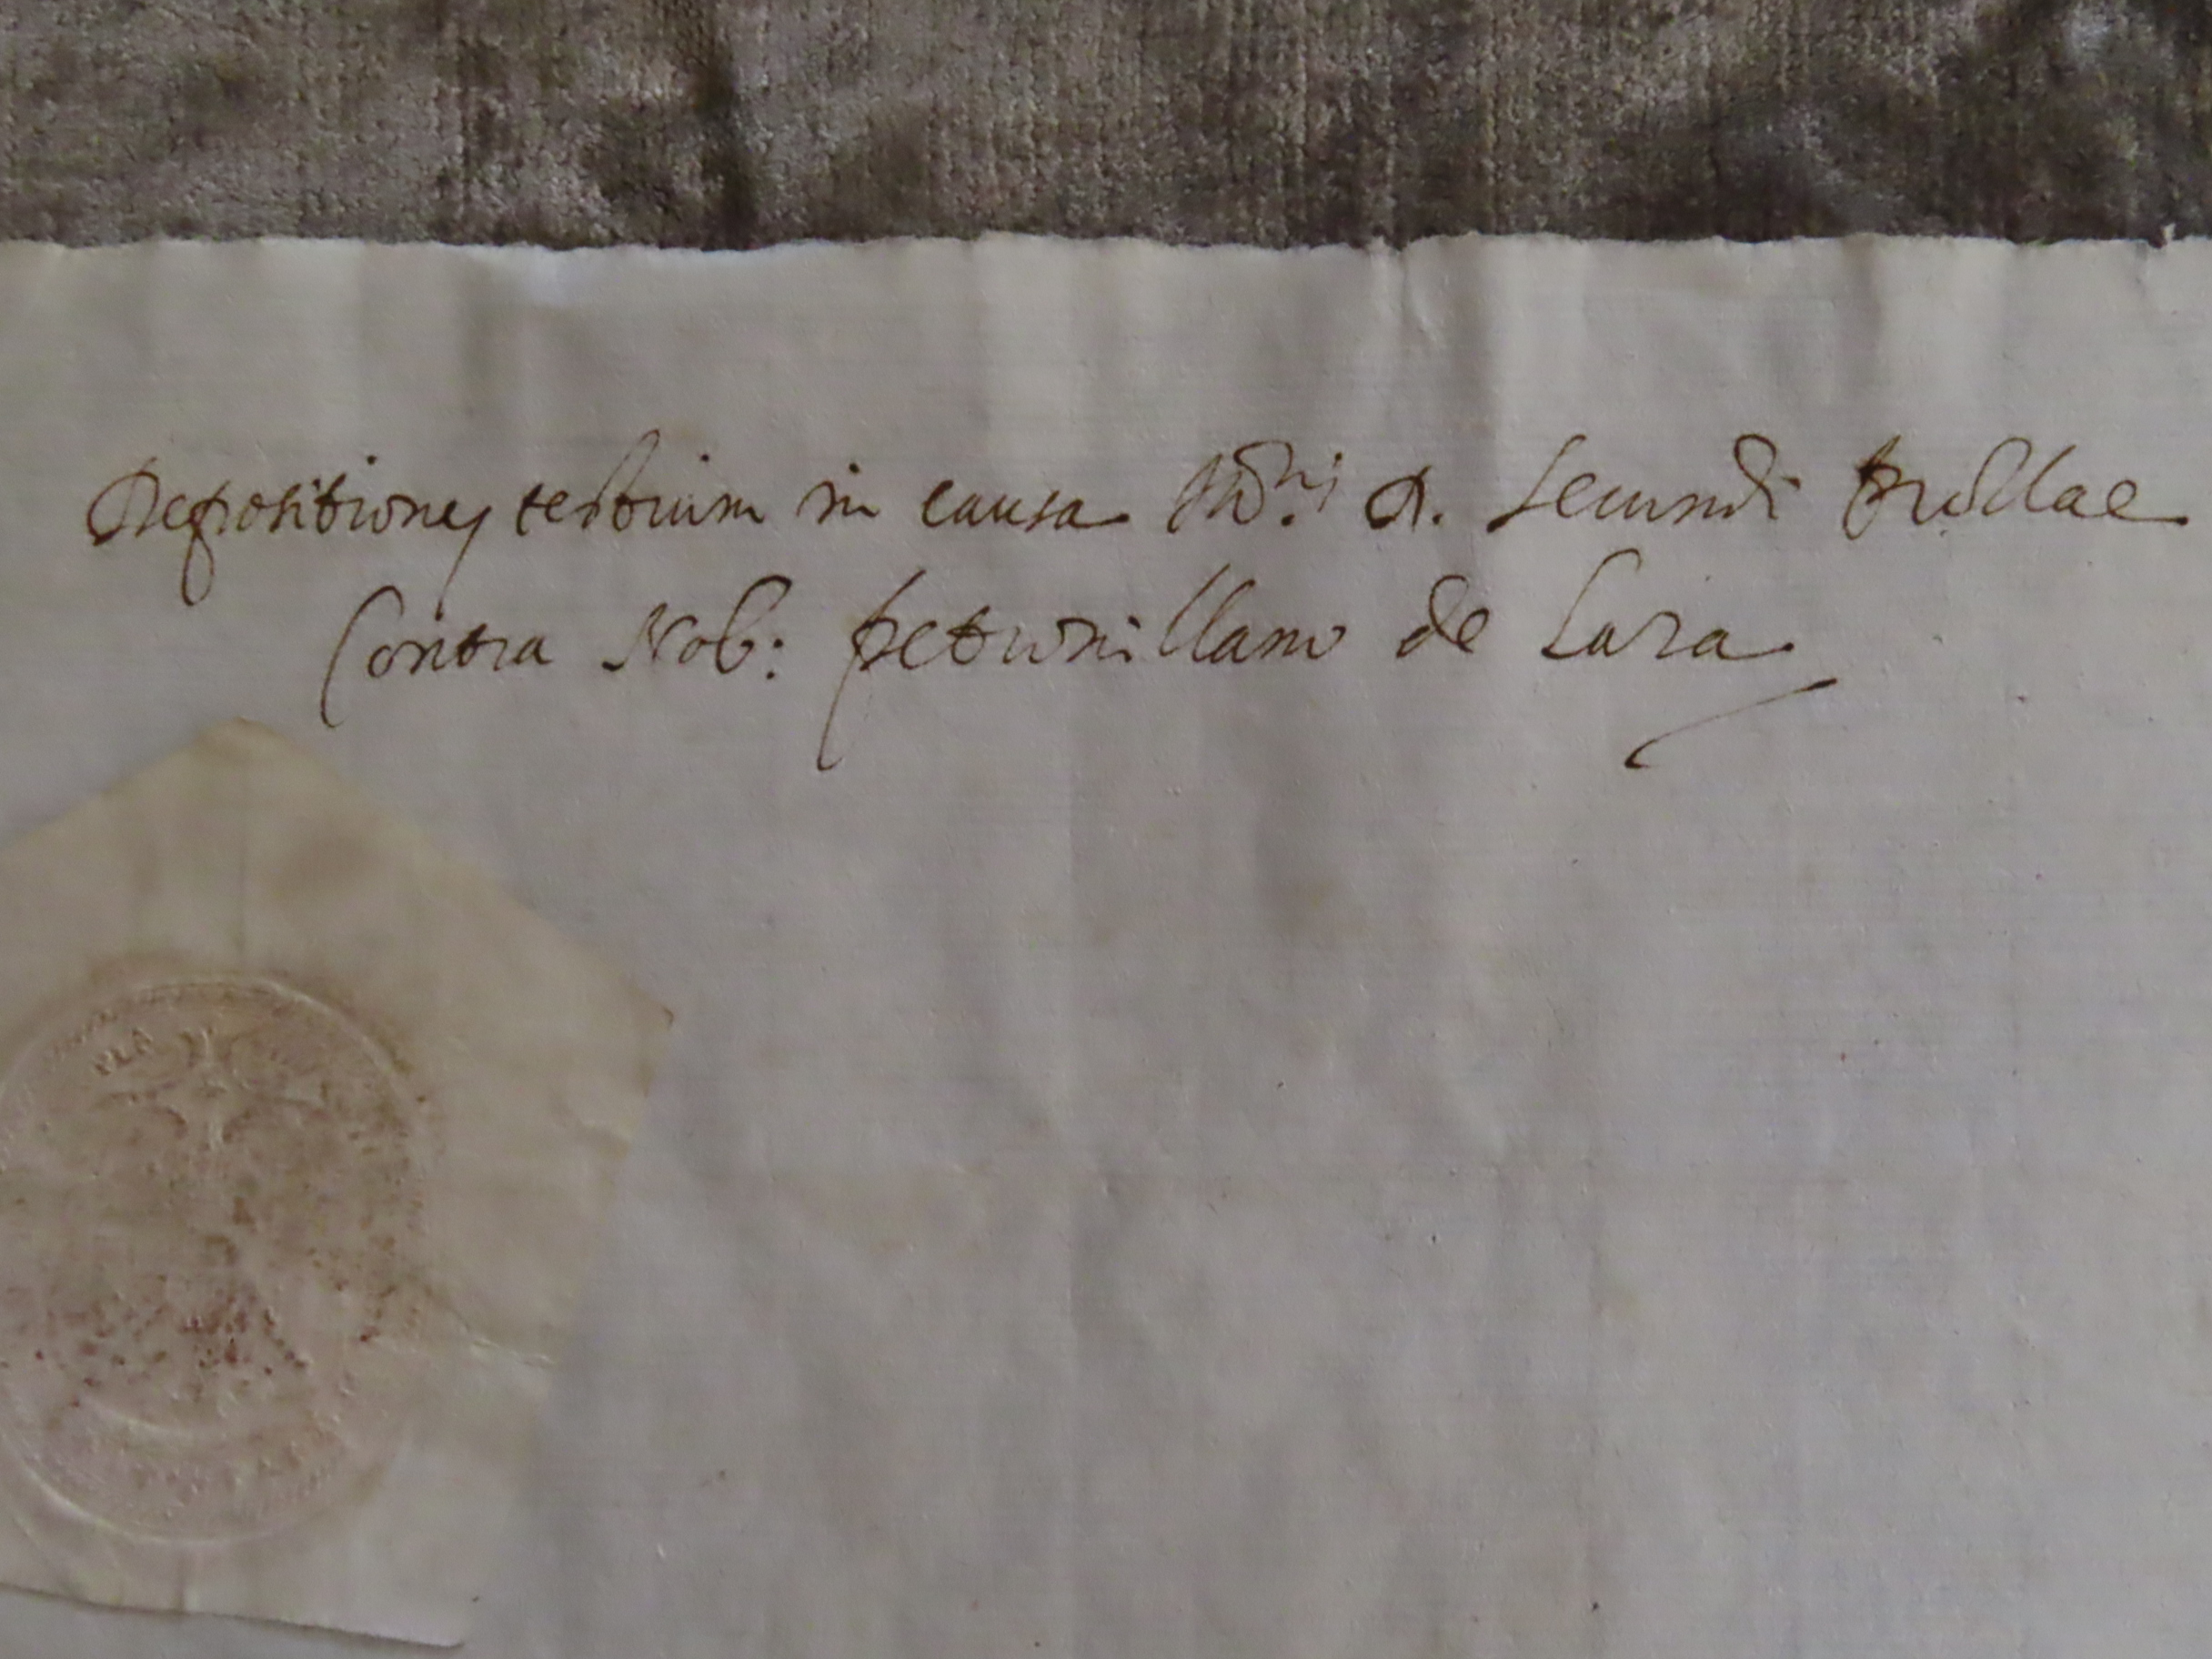 Depositiones testium in causa D. Secundi
Contra Nob: petronillam de Lara